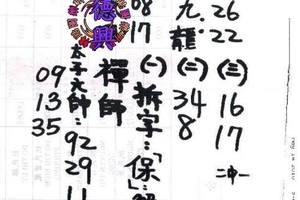 九龍
26
22
(三)
16
17
二中一
(二)
34
8
08
17
(一)
拆字:「保」:
德興
禪師
太子大師:92
29
11
09
13
35